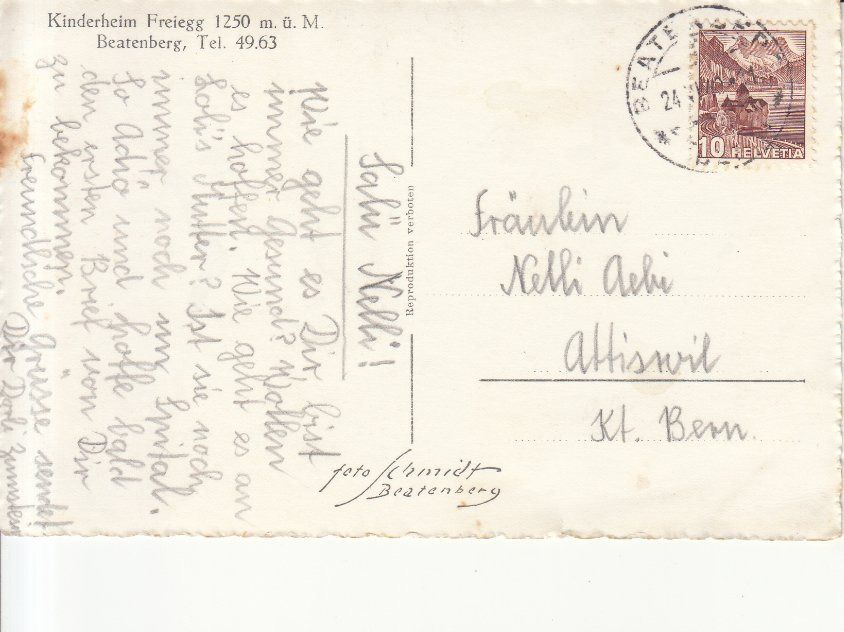 Kinderheim Freiegg 1250 m. ü. M.
Beatenberg, Tel. 49.63
Salü Nelli!
Wie geht es Dir bist
immer Gesund? Wollen
es hoffen. Wie geht es an
Loli's Mutter? Ist sie noch
immer noch im Spital.
So Adio und hoffe bald
den ersten Brief von Dir
zu bekommen.
Freundliche Grüsse sendet
Dir Dorli Zumstein
Reproduktion verboten
foto Schmidt
Beatenberg
BEATENBERG
24
10 HELVETIA
Fräulein
Nelli Aebi
Attiswil
Kt. Bern.